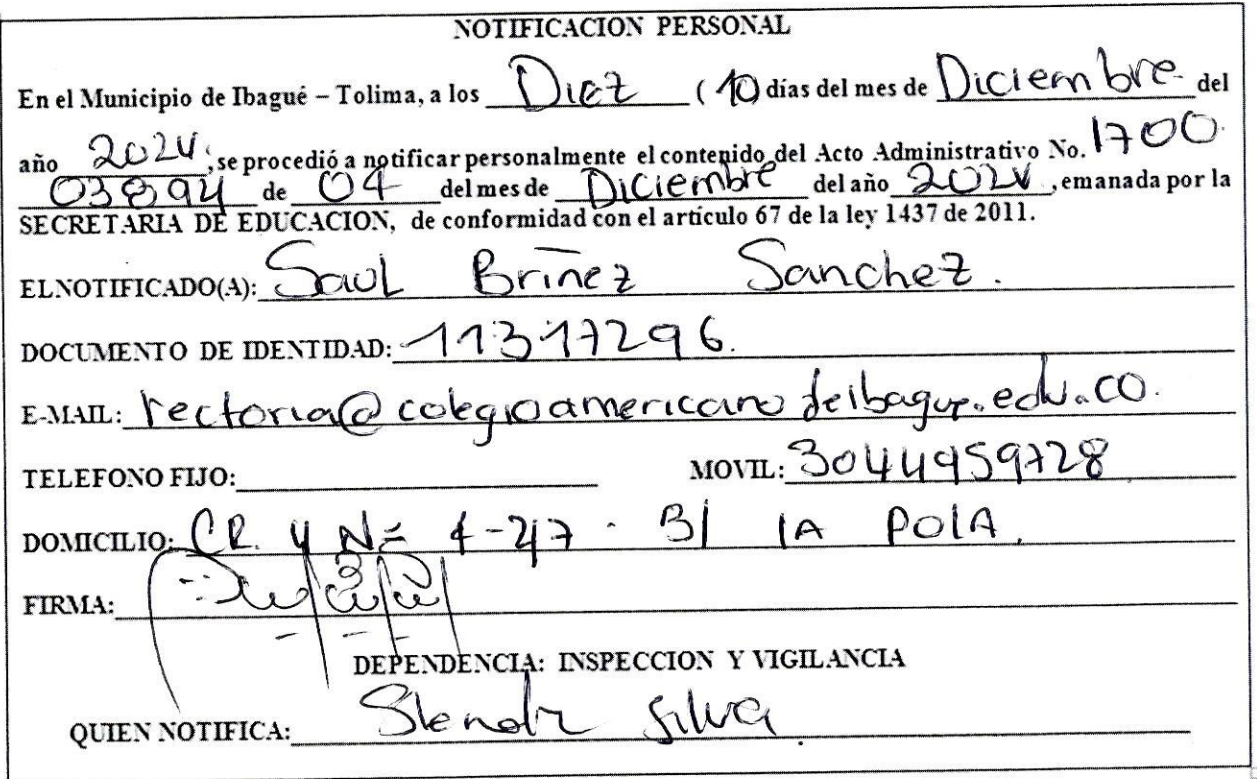 NOTIFICACION PERSONAL
En el Municipio de Ibagué – Tolima, a los Diez (10 días del mes de Diciembre del
año 2024, se procedió a notificar personalmente el contenido del Acto Administrativo No. 1700
03894 de 04 del mes de Diciembre del año 2024, emanada por la
SECRETARIA DE EDUCACION, de conformidad con el artículo 67 de la ley 1437 de 2011.
EL NOTIFICADO(A): Saul Briñez Sanchez.
DOCUMENTO DE IDENTIDAD: 11317296.
E-MAIL: rectoria@colegioamericanodeibague.edu.co.
TELEFONO FIJO: MOVIL: 3044959728
DOMICILIO: CR. 4 N= 4-27 - B/ LA POLA.
FIRMA:
DEPENDENCIA: INSPECCION Y VIGILANCIA
QUIEN NOTIFICA: Silva